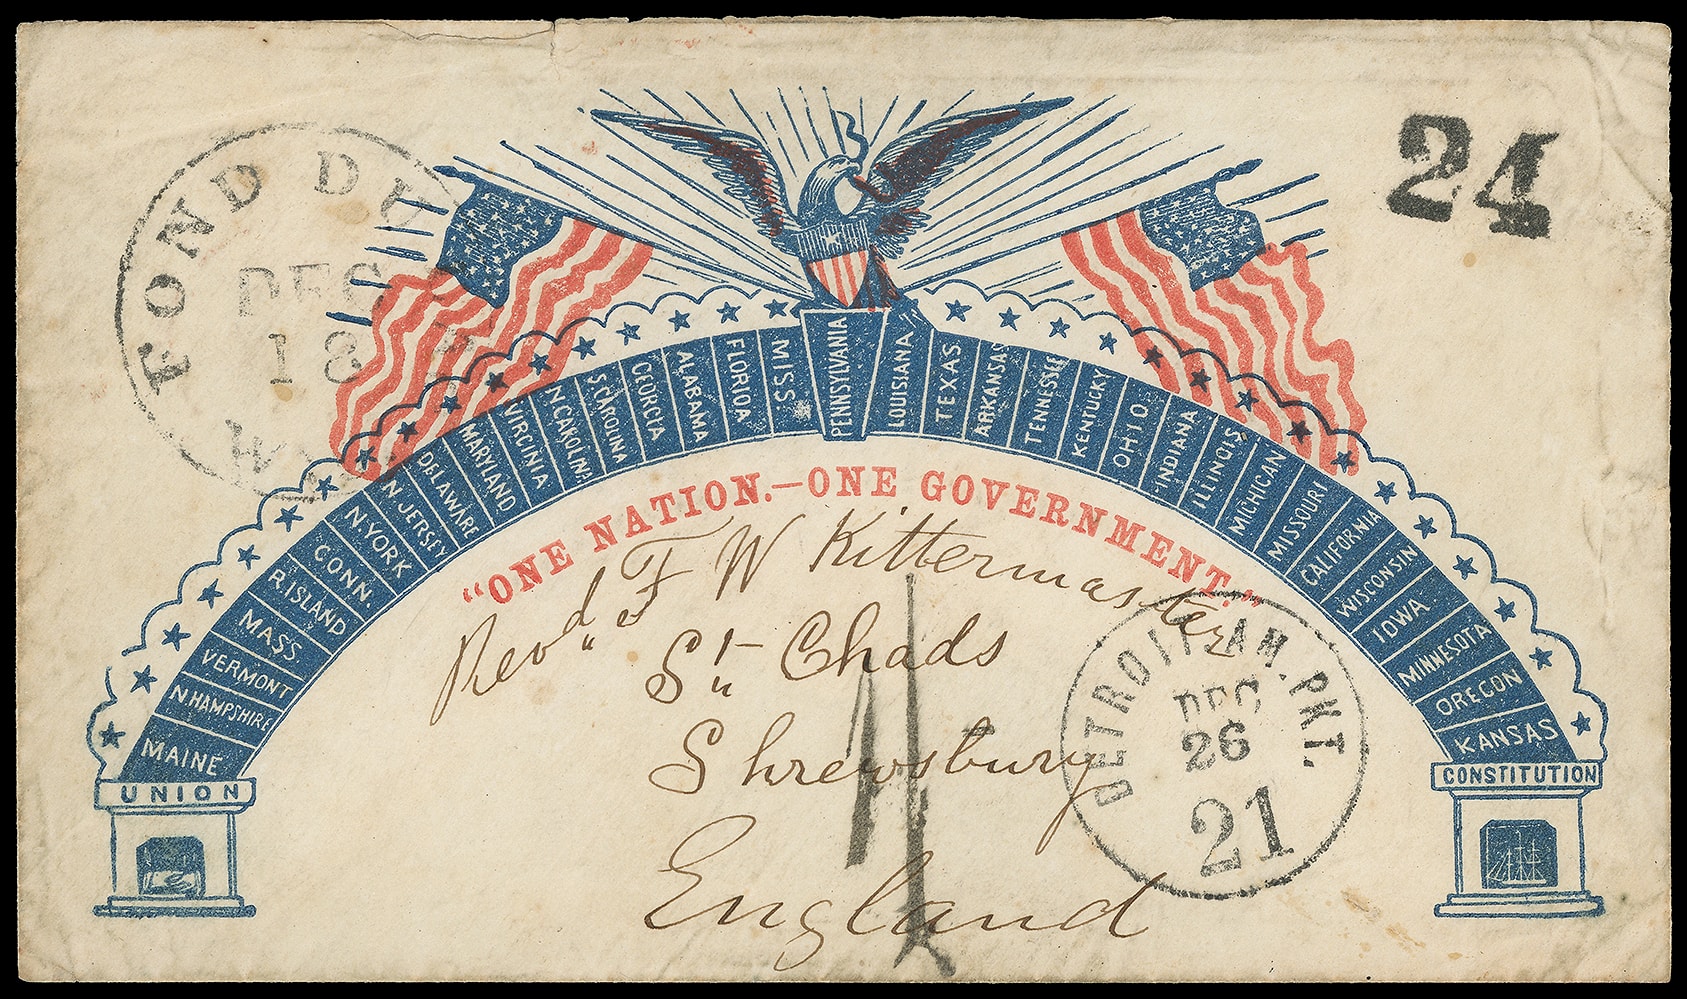 FOND DU
DEC
18
24
MAINE
N HAMPSHIRE
VERMONT
MASS.
R.ISLAND
CONN.
N YORK
N. JERSEY
DELAWARE
MARYLAND
VIRGINIA
N.CAROLINA
S.CAROLINA
GEORGIA
ALABAMA
FLORIDA
MISS.
PENNSYLVANIA
LOUISIANA
TEXAS
ARKANSAS
TENNESSEE
KENTUCKY
OHIO
INDIANA
ILLINOIS
MICHIGAN
MISSOURI
CALIFORNIA
WISCONSIN
IOWA
MINNESOTA
OREGON
KANSAS
UNION
CONSTITUTION
"ONE NATION.—ONE GOVERNMENT."
Revd F W Kittermaster
St Chads
Shrewsbury
England
DETROIT AM. PKT.
DEC
26
21